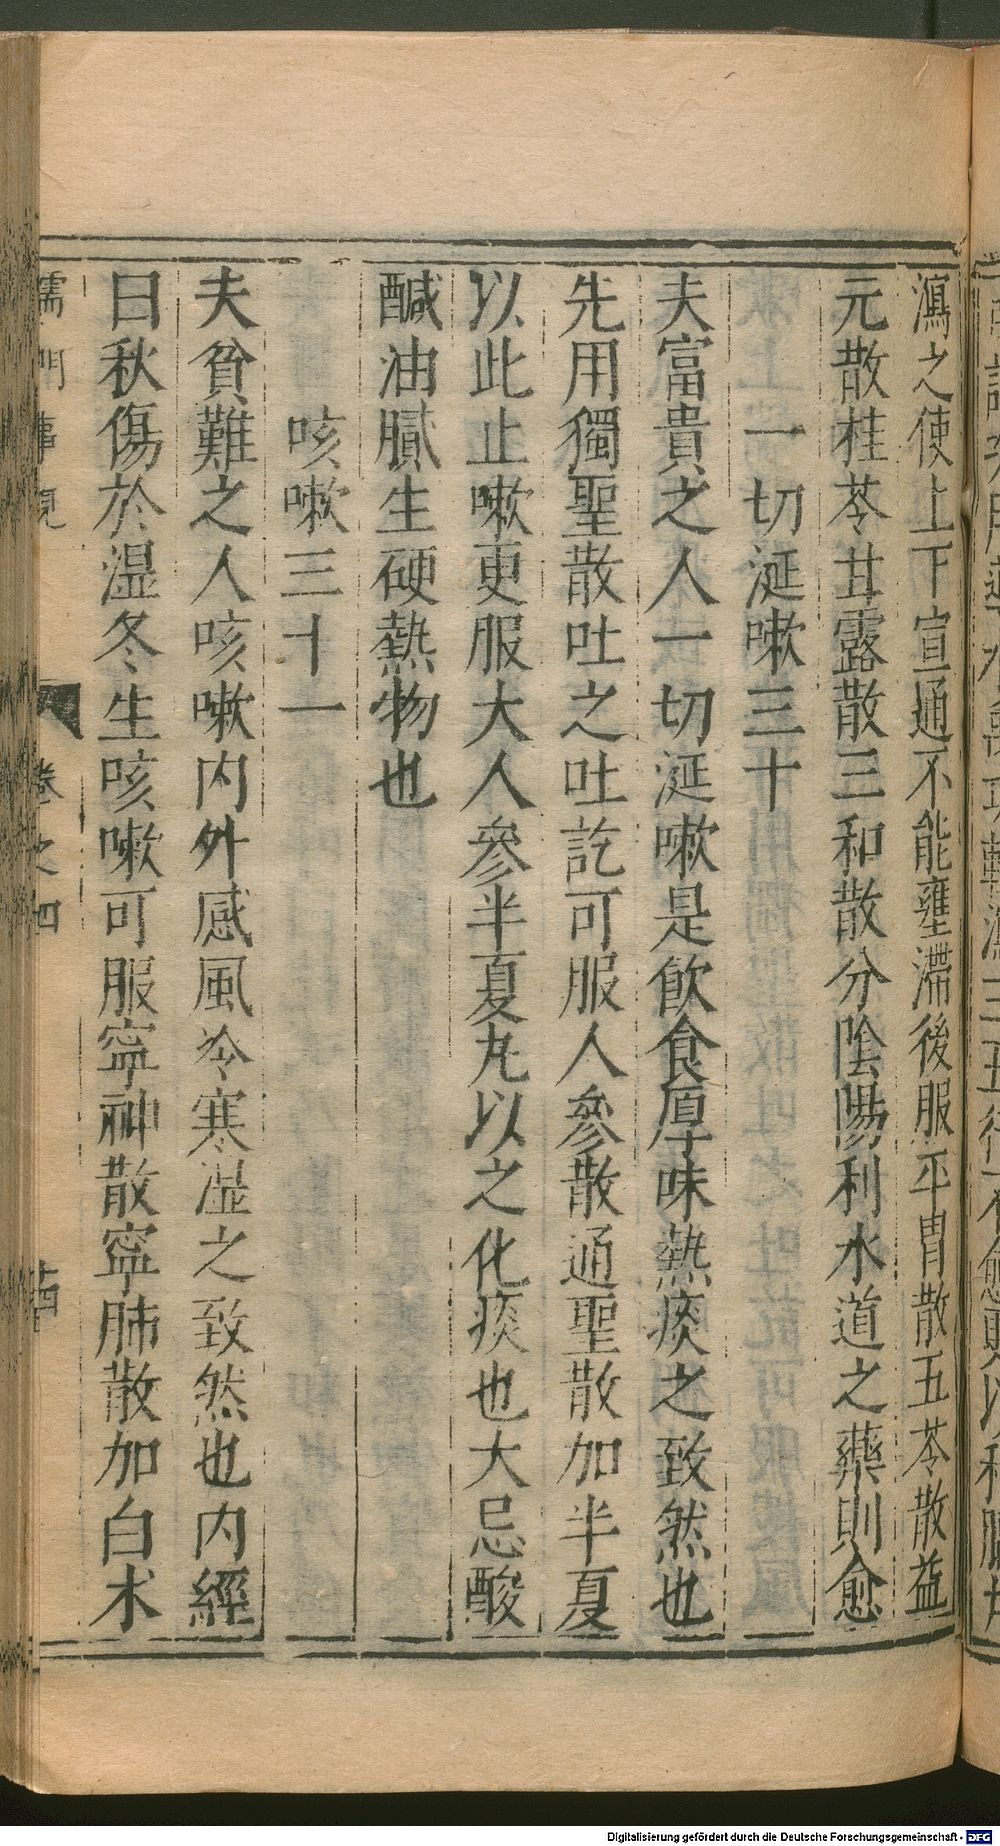 瀉之使上下宣通不能壅滯後服平胃散五苓散益
元散桂苓甘露散三和散分陰陽利水道之藥則愈
一切涎嗽三十
夫富貴之人一切涎嗽是飲食厚味熱痰之致然也
先用獨聖散吐之吐訖可服人參散通聖散加半夏
以此止嗽更服大人參半夏丸以之化痰也大忌酸
醎油膩生硬熱物也
咳嗽三十一
夫貧難之人咳嗽内外感風冷寒湿之致然也内經
曰秋傷於湿冬生咳嗽可服寧神散寧肺散加白术
儒門事親
卷之四
Digitalisierung gefördert durch die Deutsche Forschungsgemeinschaft - DFG